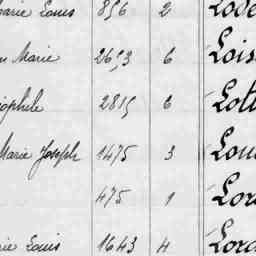 Marie Louis 856 2 Lode
Marie 2653 6 Lois
iophile 2815 6 Lott
Marie Joseph 1475 3 Lou
475 1 Lor
rie Louis 1643 4 Lord